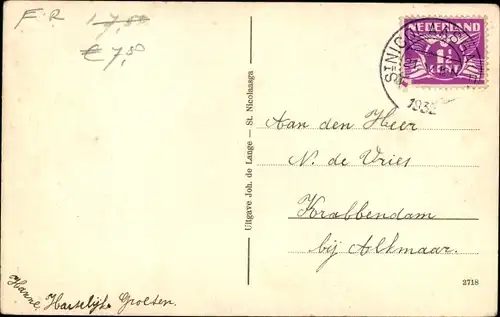 F.R 17,50
€ 7,50
NEDERLAND
1½
CENT
ST NICOLAASGA
1932
Aan den Heer
N. de Vries
Krabbendam
bij Alkmaar.
Uitgave Joh. de Lange - St. Nicolaasga
Hanne, Hartelijke Groeten.
2718